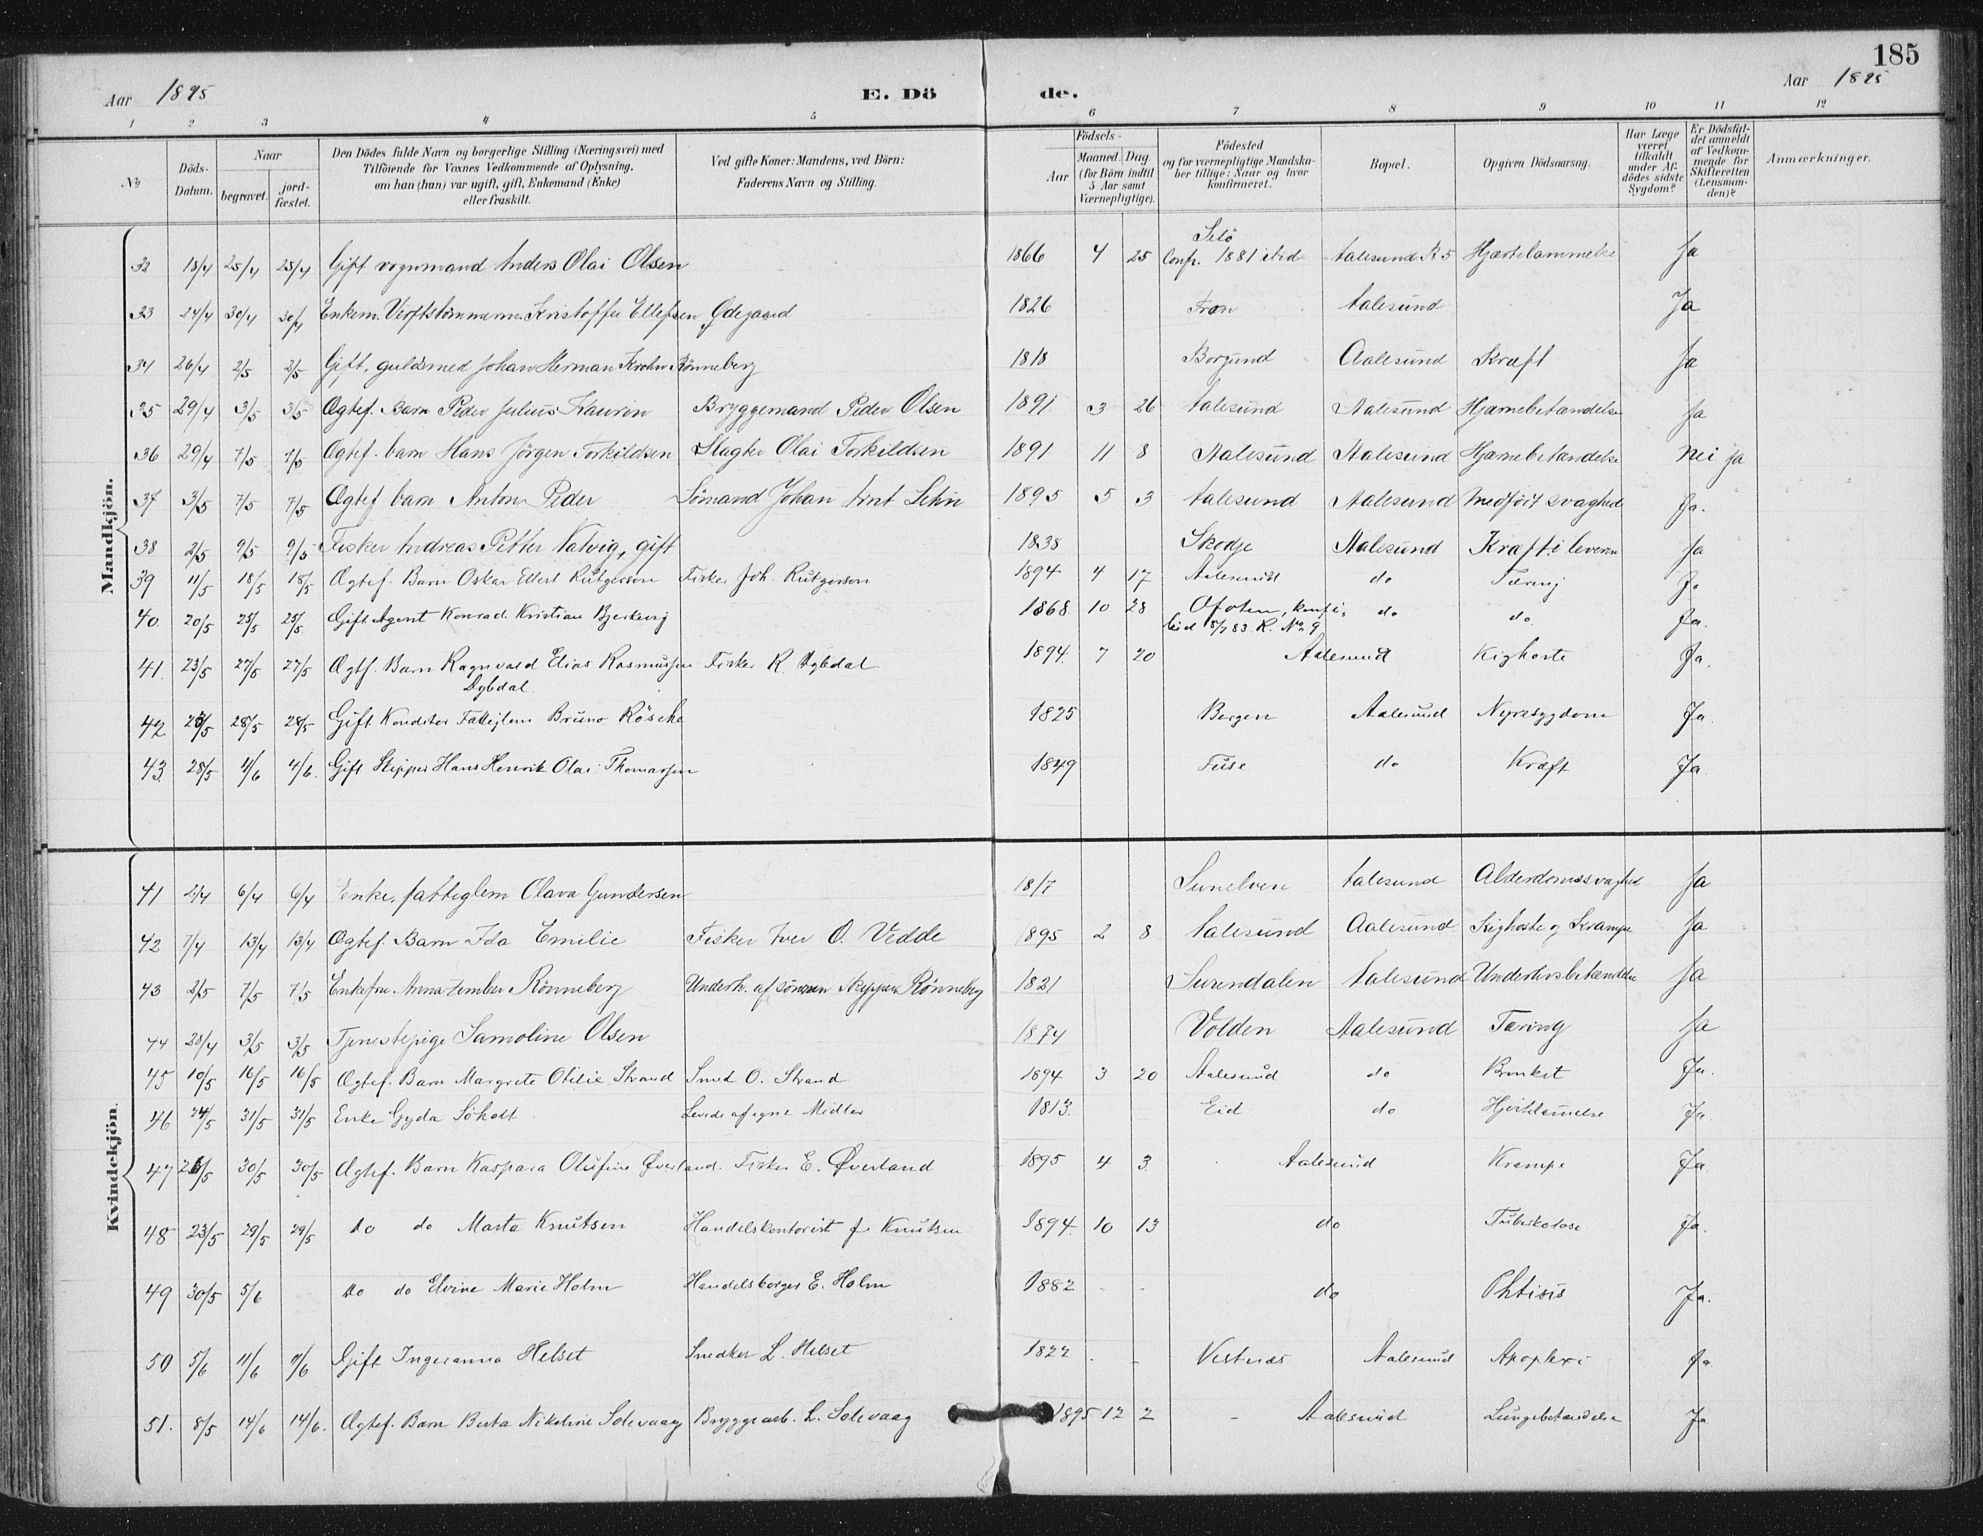 185
Aar 1895 E. Dö de. Aar 1895
1 2 3 4 5 6 7 8 9 10 11 12
No
Döds-Datum.
Naar
begravet.
jord-fæstet.
Den Dödes fulde Navn og borgerlige Stilling (Næringsvei) med
Tilföiende for Voxnes Vedkommende af Oplysning,
om han (hun) var ugift, gift, Enkemand (Enke)
eller fraskilt.
Ved gifte Koner: Mandens, ved Börn:
Faderens Navn og Stilling.
Födsels-
Aar
Maaned. Dag.
(for Börn indtil
5 Aar samt
Værnepligtige).
Födested
og for værnepligtige Mandska-
ber tillige: Naar og hvor
konfirmeret.
Bopæl.
Opgiven Dödsaarsag.
Har Læge
været
tilkaldt
under Af-
dödes sidste
Sygdom?
Er Dödsfal-
det anmeldt
af Vedkom-
mende for
Skifteretten
(Lensman-
den)?
Anmærkninger.
Mandkjön.
32 18/4 25/4 25/4 Gift vognmand Anders Olai Olsen 1866 4 25 Selö Conf. 1881 ibid Aalesund R 5 Hjertelammelse Ja
33 24/4 30/4 30/4 Enkem. Kristoffer Ellefsen Ødegaard 1826 Fron Aalesund Ja
34 26/4 2/5 2/5 Gift, guldsmed Johan Herman Krohn Rønneberg 1818 Borgund Aalesund Kræft Ja
35 29/4 3/5 3/5 Ægtef. Barn Peder Julius Kaurin Bryggemand Peder Olsen 1891 3 26 Aalesund Aalesund Hjærnebetændelse Ja
36 29/4 7/5 7/5 Ægtef. barn Hans Jörgen Torkildsen Slagter Olai Torkildsen 1891 11 8 Aalesund Aalesund Hjærnebetændelse Nei ja
37 3/5 7/5 7/5 Ægtef barn Anton Peder Sömand Johan Arnt 1895 5 3 Aalesund Aalesund Medført svaghed Ja.
38 2/5 9/5 9/5 Fisker Andreas Petter Natvig, gift 1838 Skodje Aalesund Kræft i leveren Ja
39 11/5 18/5 18/5 Ægtef. Barn Oskar Ellert Rutgerson Fisker Joh. Rutgerson 1894 4 17 Aalesund do Tæring Ja
40. 20/5 25/5 25/5 Gift Agent Konrad Kristian Bjerkevig 1868 10 28 Ofoten, konf. i. 83. R. No 9 do do Ja.
41. 23/5 27/5 27/5 Ægtf. Barn Ragnvald Elias Rasmussen Dybdal Fisker R. Dybdal 1894. 7 20 Aalesund Kighoste Ja.
42 25/5 28/5 28/5 Gift Konditor Fattiglem Bruno Røscke 1825 Bergen Aalesund Nyresygdom Ja.
43. 28/5 4/6 4/6. Gift Skipper Hans Henrik Olai Thomassen 1849 Fuse do Kræft Ja
Kvindekjön.
41 2/4 6/4 6/4 Enke, fattiglem Olava Gundersen 1817 Sunelven Aalesund Alderdomssvaghed Ja
42 7/4 13/4 13/4 Ægtef. Barn Ida Emilie Fisker Iver O. Vedde 1895 2 8 Aalesund Aalesund Kighoste og Krampe Ja
43 2/5 7/5 7/5 Enkefru Anna Rønneberg Underh. af sønnen Skipper Rønneberg 1821 Surendalen Aalesund Underlivsbetændelse Ja
44 28/4 3/5 3/5 Tjenestepige Samoline Olsen 1874 Volden Aalesund Tæring Ja
45 10/5 16/5 16/5 Ægtef. Barn Margrete Otilie Strand Smed O. Strand 1894 3 20 Aalesund do Bronkit Ja.
46 24/5 31/5 31/5 Enke Gyda Søholt Levede af egne Midler 1813. Eid do Hjertelamelse Ja.
47 26/5 30/5 30/5 Ægtef. Barn Kaspara Olufine Øverland. Fisker E. Øverland 1895 4 3. Aalesund Krampe Ja.
48 23/5 29/5 29/5 do do Marta Knutsen Handelskontorist J. Knutsen 1894. 10 13 do Tuberkolose Ja.
49 30/5 5/6 do do Elvine Marie Holm Handelsborger E. Holm 1882 . . do Phtisis Ja.
50 5/6 11/6 11/6 Gift Ingeranna Helset Snedker L. Helset 1822 . - Vestnes Aalesund Apoplexi Ja
51. 8/5 14/6 14/6. Ægtef. Barn Berta Nikoline Solevaag Bryggearb. L. Solevaag 1895 12 2 - Aalesund Lungebetændelse Ja